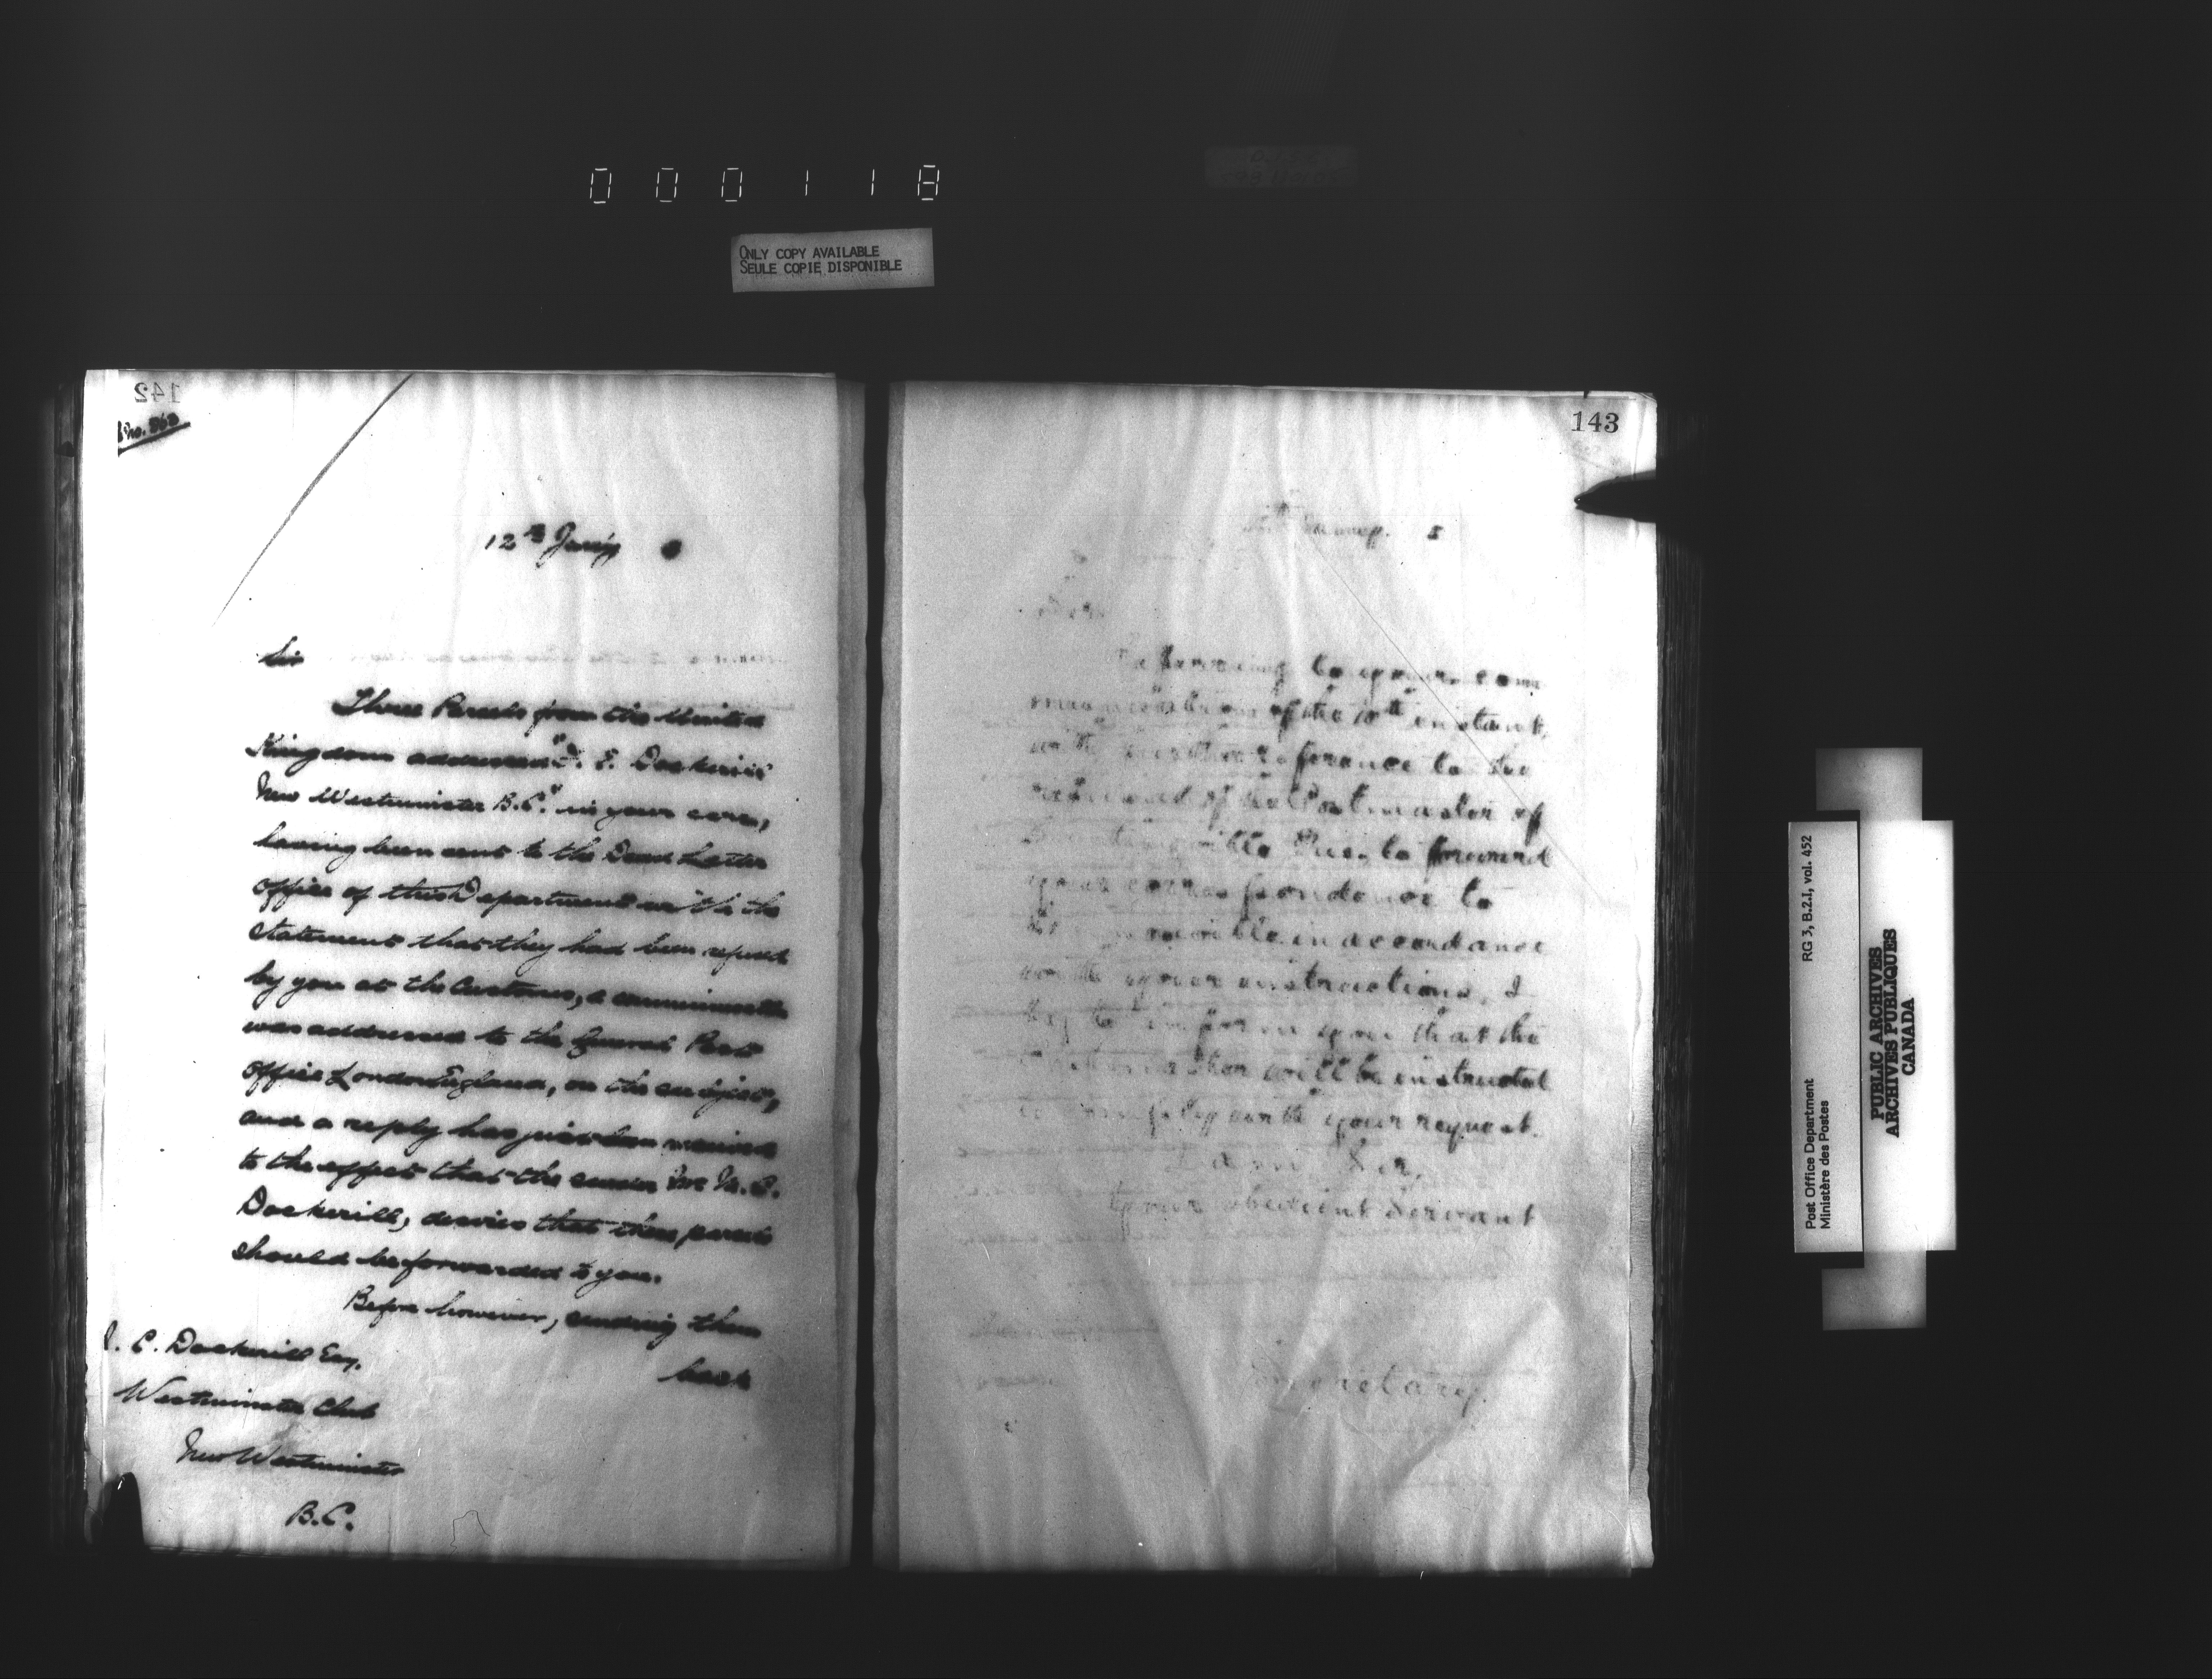 000118
ONLY COPY AVAILABLE
SEULE COPIE DISPONIBLE
142
12th Jan'y 8
Sir
Three Parcels from the United
Kingdom addressed "J. E. Dockerill
New Westminster B.C." in your care,
having been sent to the Dead Letter
Office of this Department with the
statement that they had been refused
by you at the Customs, a communication
was addressed to the General Post
Office London England, on the subject,
and a reply has just been received
to the effect that the sender Mr M. C.
Dockerill, desires that these parcels
should be forwarded to you.
Before however, sending them
back
C. Dockerill Esq.
Westminster Club
New Westminster
B.C.
143
January. 8
Sir.
Referring to your com
munication of the 10th instant,
with further reference to the
refusal of the Postmaster of
Que. to forward
your correspondence to
in accordance
with your instructions, I
beg to inform you that the
Postmaster will be instructed
to comply with your request.
I am Sir,
Your obedient Servant
Secretary.
Post Office Department
Ministère des Postes
RG 3, B.2.I, vol. 452
PUBLIC ARCHIVES
ARCHIVES PUBLIQUES
CANADA